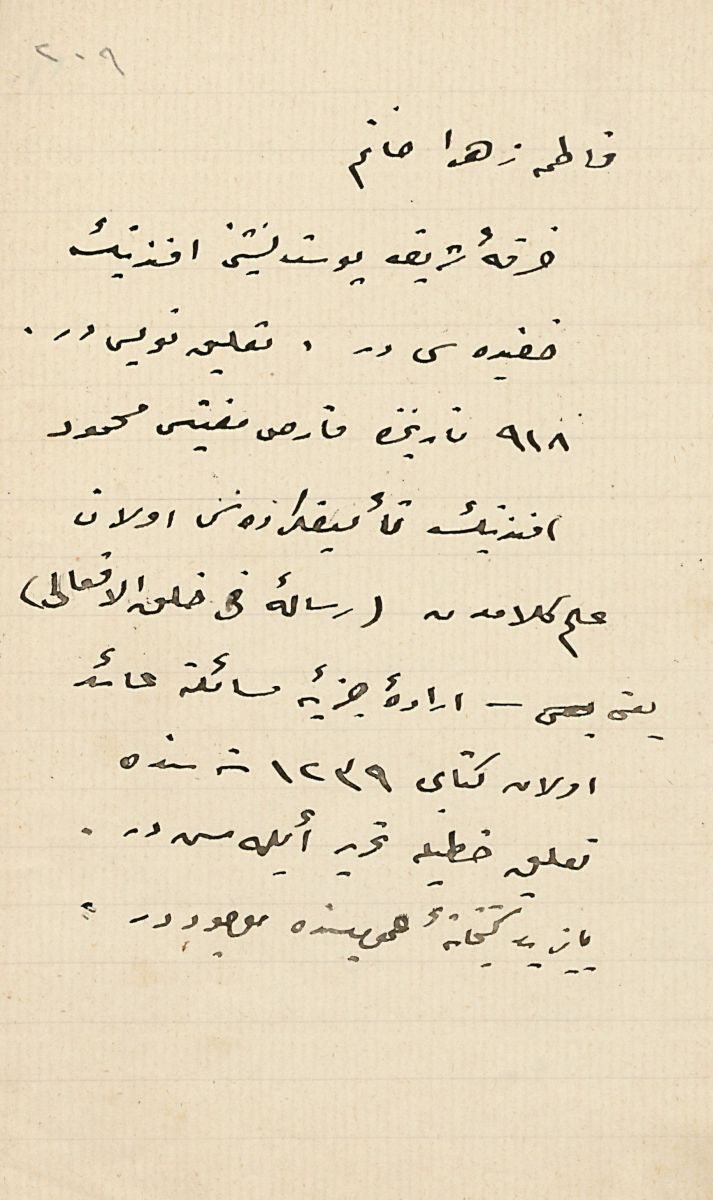 ٢٠٩
فاطمه زهرا خانم
خرقهٔ شریفه پوستنشینی افندینك
حفیده سی در ، تعلیق نویس در .
٩١٨ تاریخنده قارص مفتیسی محمود
افندینك تألیفکرده سی اولان
علم کلامدن (رسالهٔ فی خلق الافعال)
یعنی — ارادهٔ جزئیه مسائلنه عائد
اولان کتابی ١٢٣٩ سنه سنده
تعلیق خطیله تحریر أیله مس در .
بایزید کتبخانهٔ عمومیسنده موجوددر